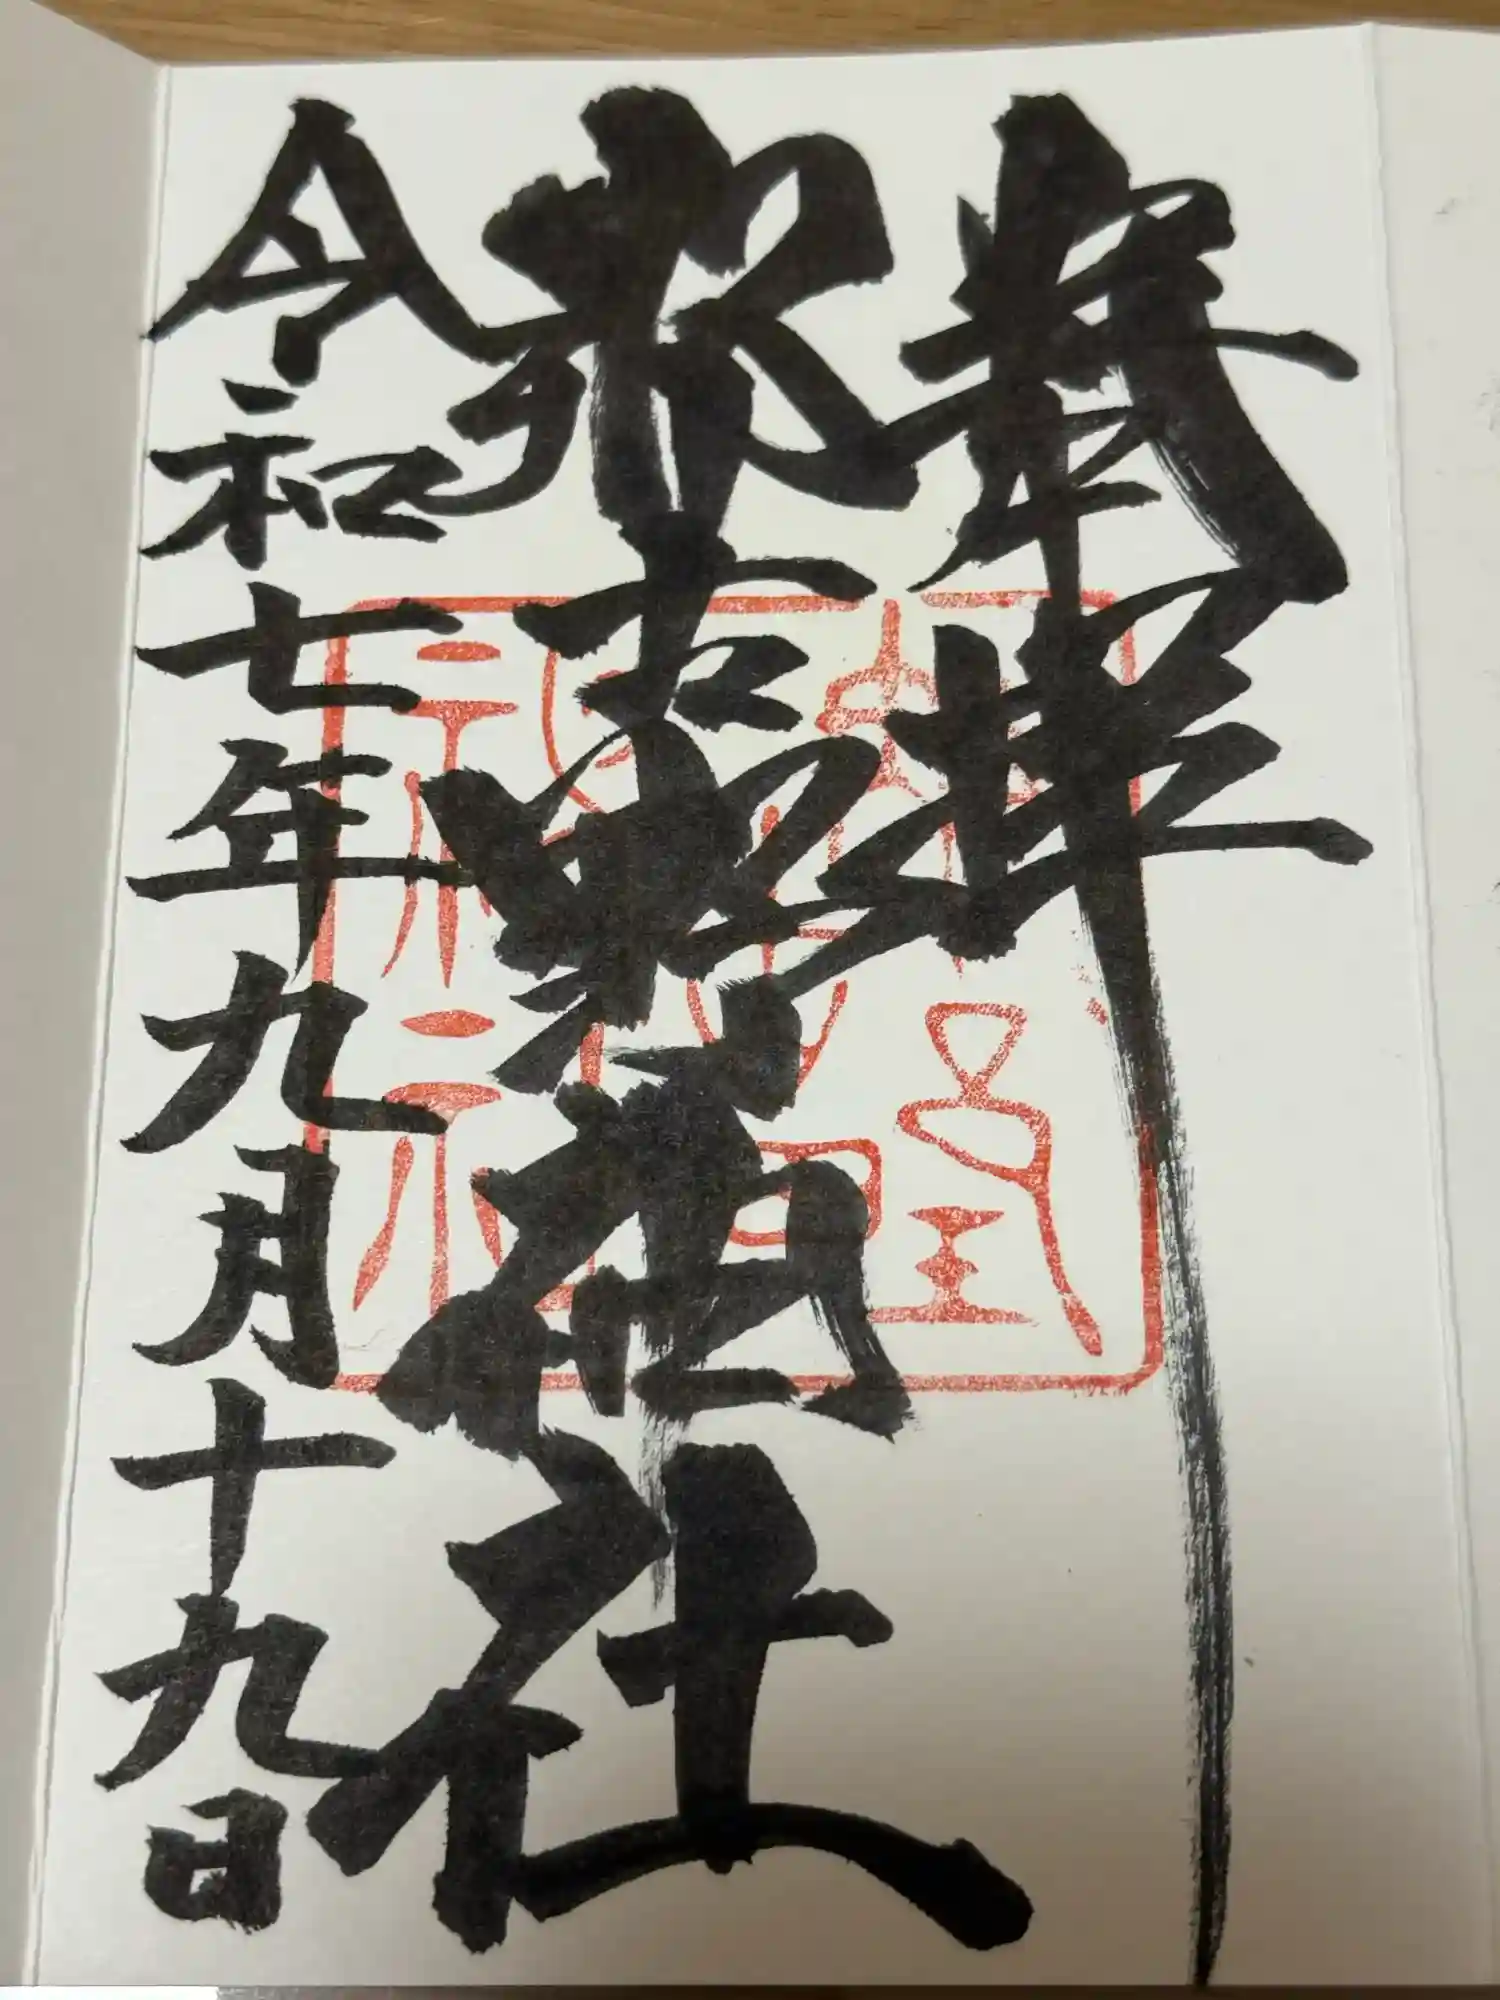 奉拝
那古野神社
令和七年九月十九日